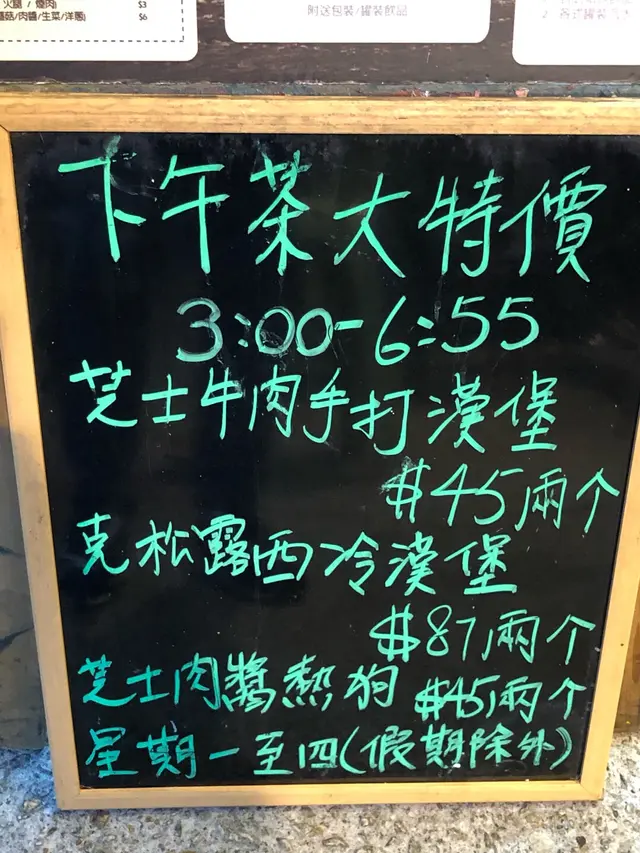 火腿 / 煙肉) $3
蘑菇/肉醬/生菜/洋蔥) $6
附送包裝/罐裝飲品
下午茶大特價
3:00-6:55
芝士牛肉手打漢堡
$45兩个
克松露西冷漢堡
$87兩个
芝士肉醬熱狗 $45兩个
星期一至四(假期除外)